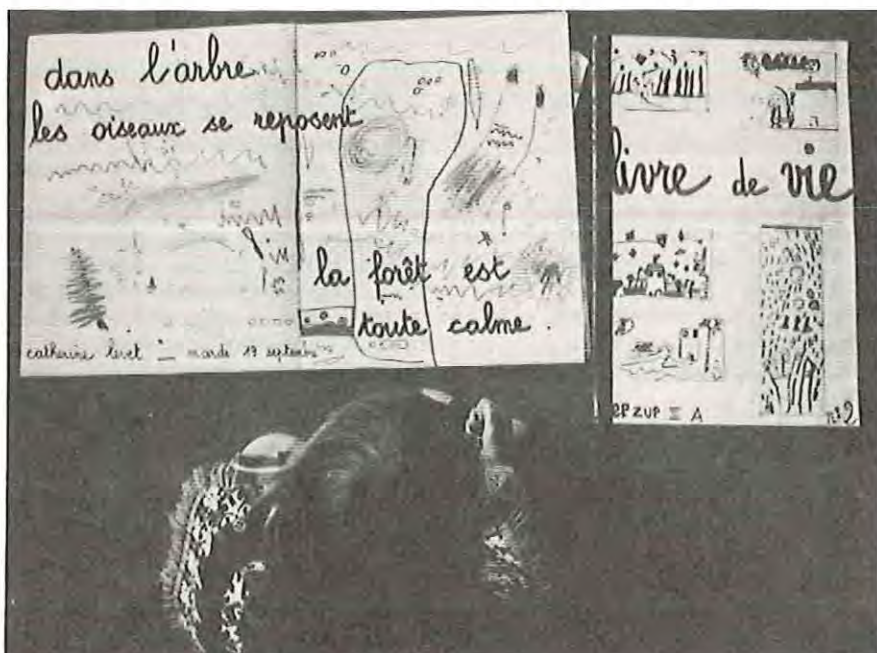 dans l'arbre
les oiseaux se reposent
la forêt est
toute calme.
catherine mardi 19 septembre
livre de vie
ZUP II A
n°2